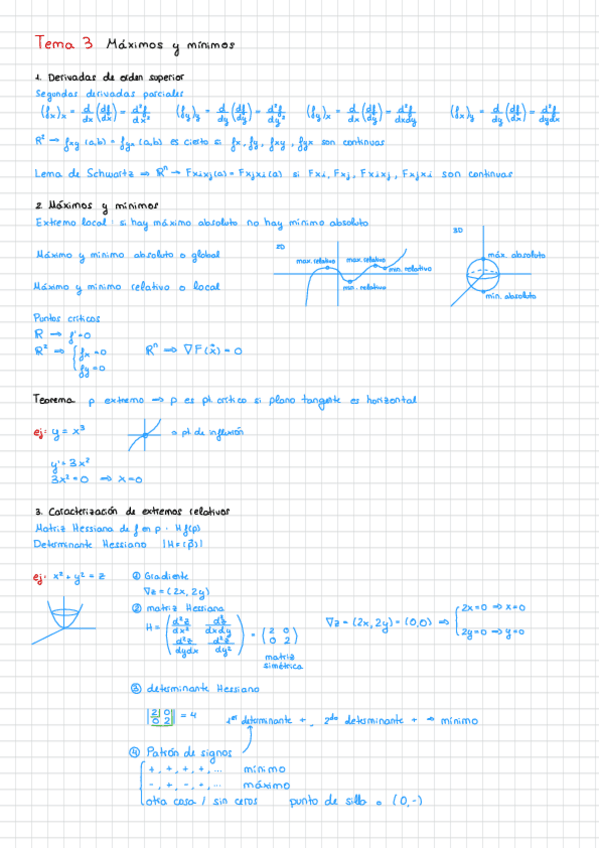 Tema 3 Máximos y mínimos
1. Derivadas de orden superior
Segundas derivadas parciales
(fx)x = d/dx (df/dx) = d²f/dx² (fy)y = d/dy (df/dy) = d²f/dy² (fy)x = d/dx (df/dy) = d²f/dxdy (fx)y = d/dy (df/dx) = d²f/dydx
R² → fxy (a,b) = fyx (a,b) es cierto si fx, fy, fxy, fyx son continuas
Lema de Schwartz ⇒ Rⁿ → Fxixj(a) = Fxjxi(a) si Fxi, Fxj, Fxixj, Fxjxi son continuas
2. Máximos y mínimos
Extremo local: si hay máximo absoluto no hay mínimo absoluto
2D
3D
Máximo y mínimo absoluto o global
max. relativo
max. relativo
min. relativo
min. relativo
máx. absoluto
min. absoluto
Máximo y mínimo relativo o local
Puntos críticos
R → f'=0
R² ⇒ { fx = 0
fy = 0
Rⁿ ⇒ ∇F(x) = 0
Teorema p extremo ⇒ p es pt. crítico si plano tangente es horizontal
ej: y = x³
pt de inflexión
y' = 3x²
3x² = 0 ⇒ x=0
3. Caracterización de extremos relativos
Matriz Hessiana de f en p · Hf(p)
Determinante Hessiano |H=(p)|
ej: x² + y² = z
① Gradiente
∇z = (2x, 2y)
② matriz Hessiana
H = ( d²z/dx² d²z/dxdy
d²z/dydx d²z/dy² ) = ( 2 0
0 2 )
matriz simétrica
∇z = (2x, 2y) = (0,0) ⇒ { 2x=0 ⇒ x=0
2y=0 ⇒ y=0
③ determinante Hessiano
|2 0
0 2| = 4
1er determinante +, 2do determinante + → mínimo
④ Patrón de signos
+, +, +, +, ... mínimo
-, +, -, +, ... máximo
otra cosa / sin ceros punto de silla (0,-)